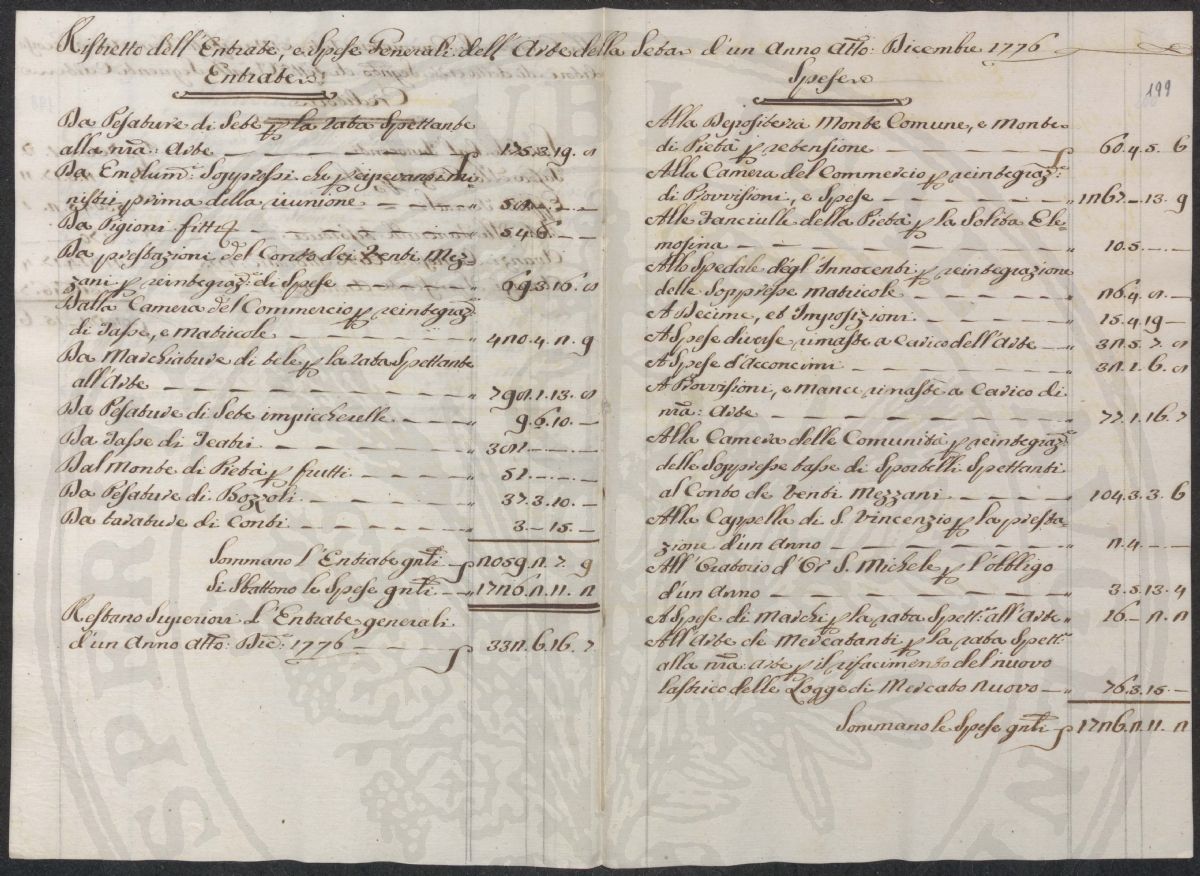 Ristretto dell'Entrate, e Spese Generali dell'Arte della Seta d'un Anno a tto: Dicembre 1776
Entrate
Da Pesature di Sete p la rata Spettante
alla nra: Arte 175.3.19.8
Da Emolum: Soppressi che p cipevansi mi-
nistri prima della riunione 58. - . -
Da Pigioni fitti 54.6. - -
Da prestazioni del Conto dei Venti Mez-
zani p reintegraz: di Spese 69.3.16.8
Dalla Camera del Commercio p reintegraz:
di Tasse, e matricole 420.4.2.9
Da Marchiature di tele p la rata Spettante
all'Arte 798.1.13.8
Da Pesature di Sete impiccherelle 9.6.10. -
Da Tasse di Teatri 381. - -
Dal Monte di Pietà p frutti 51. - -
Da Pesature di Bozzoli 37.3.10. -
Da tarature di Conti 3. - 15. -
Sommano l'Entrate gnrli 2059.2.7.9
Si Sbattono le Spese gnrli 1726.2.11.2
Restano Superiori L'Entrate generali
d'un Anno a tto: Dic: 1776 332.6.16.7
199
Spese
Alla Depositeria Monte Comune, e Monte
di Pietà p retensione 60.4.5.6
Alla Camera del Commercio p reintegraz:
di Provvisioni, e Spese 1267. - 13.9
Alle Fanciulle della Pietà p la Solita Ele-
mosina 10.5. - -
Allo Spedale degl'Innocenti p reintegrazione
delle Soppresse matricole 26.4.8. -
A Decime, et Imposizioni 15.4.19 -
A Spese diverse rimaste a Carico dell'Arte 32.5.7.8
A Spese d'Acconcimi 32.1.6.8
A Provvisioni, e mance rimaste a Carico di
nra: Arte 77.1.16.7
Alla Camera delle Comunità p reintegraz:
delle Soppresse tasse di Sportelli Spettanti
al Conto de Venti Mezzani 104.3.3.6
Alla Cappella di S. Vincenzio p la presta-
zione d'un Anno 2.4. - -
All'Oratorio d'Or S. Michele p l'obbligo
d'un Anno 3.5.13.4
A Spese di Marchi p la rata Spett: all'Arte 16 - 2.2
All'Arte de Mercatanti p la rata Spett:
alla nra Arte p il rifacimento del nuovo
lastrico delle Logge di Mercato Nuovo 76.3.15. -
Sommano le Spese gnrli 1726.2.11.2